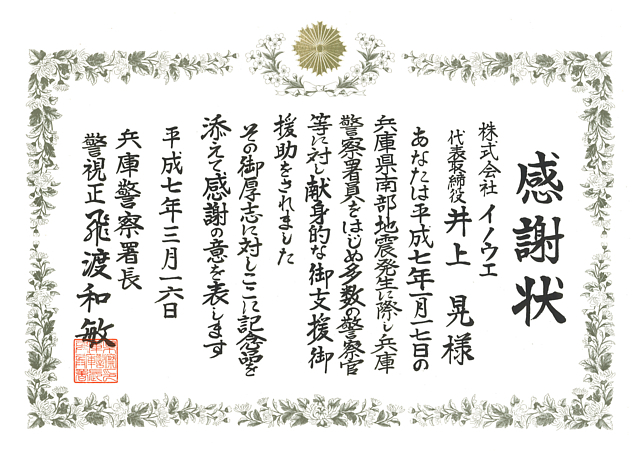 感謝状
株式会社 イノウエ
代表取締役 井上 晃 様
あなたは平成七年一月一七日の
兵庫県南部地震発生に際し兵庫
警察署員をはじめ多数の警察官
等に対し献身的な御支援御
援助をされました
その御厚志に対しここに記念品を
添えて感謝の意を表します
平成七年三月一六日
兵庫警察署長
警視正 飛渡和敏